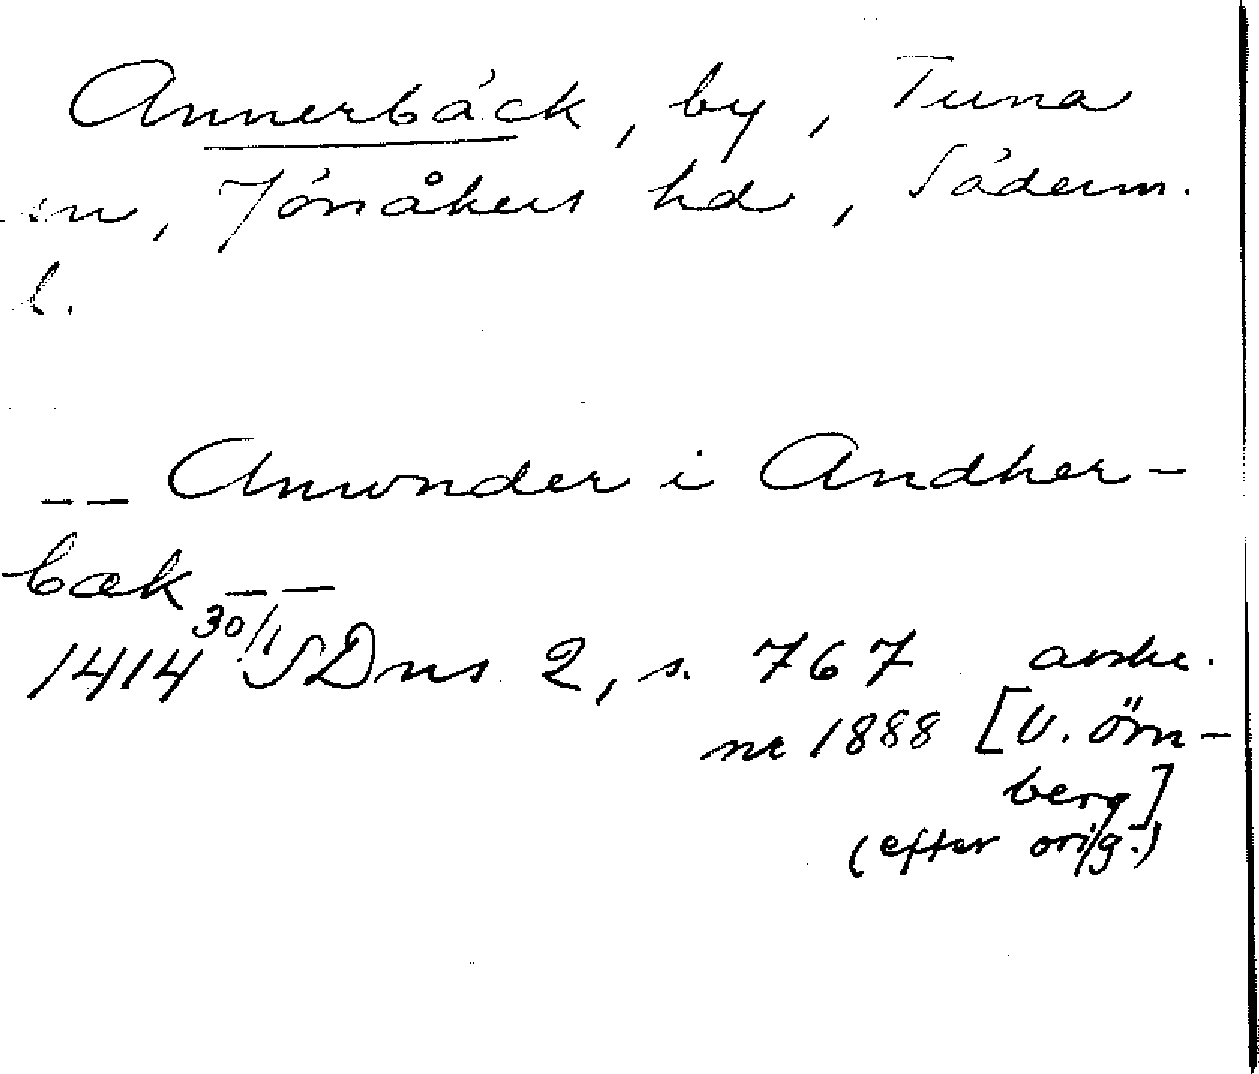 Annerbäck, by, Tuna
sn, Jönåkers hd, Söderm.
l.
-- Anwnder i Andher-
bæk --
1414 30/1 SDns 2, s. 767 avskr.
nr 1888 [V. Örn-
berg]
(efter orig.)